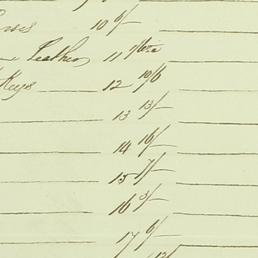 10 6/-
Leather 11
Keys 12 10/6
13 13/-
14 16/-
15 7/-
16 3/-
17 6/-